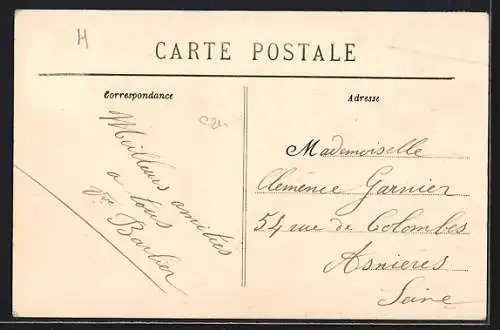 H
CARTE POSTALE
Correspondance
Meilleurs amitiés
a tous
Vve Barbier
Adresse
Mademoiselle
Clemence Garnier
54 rue de Colombes
Asnieres
Seine